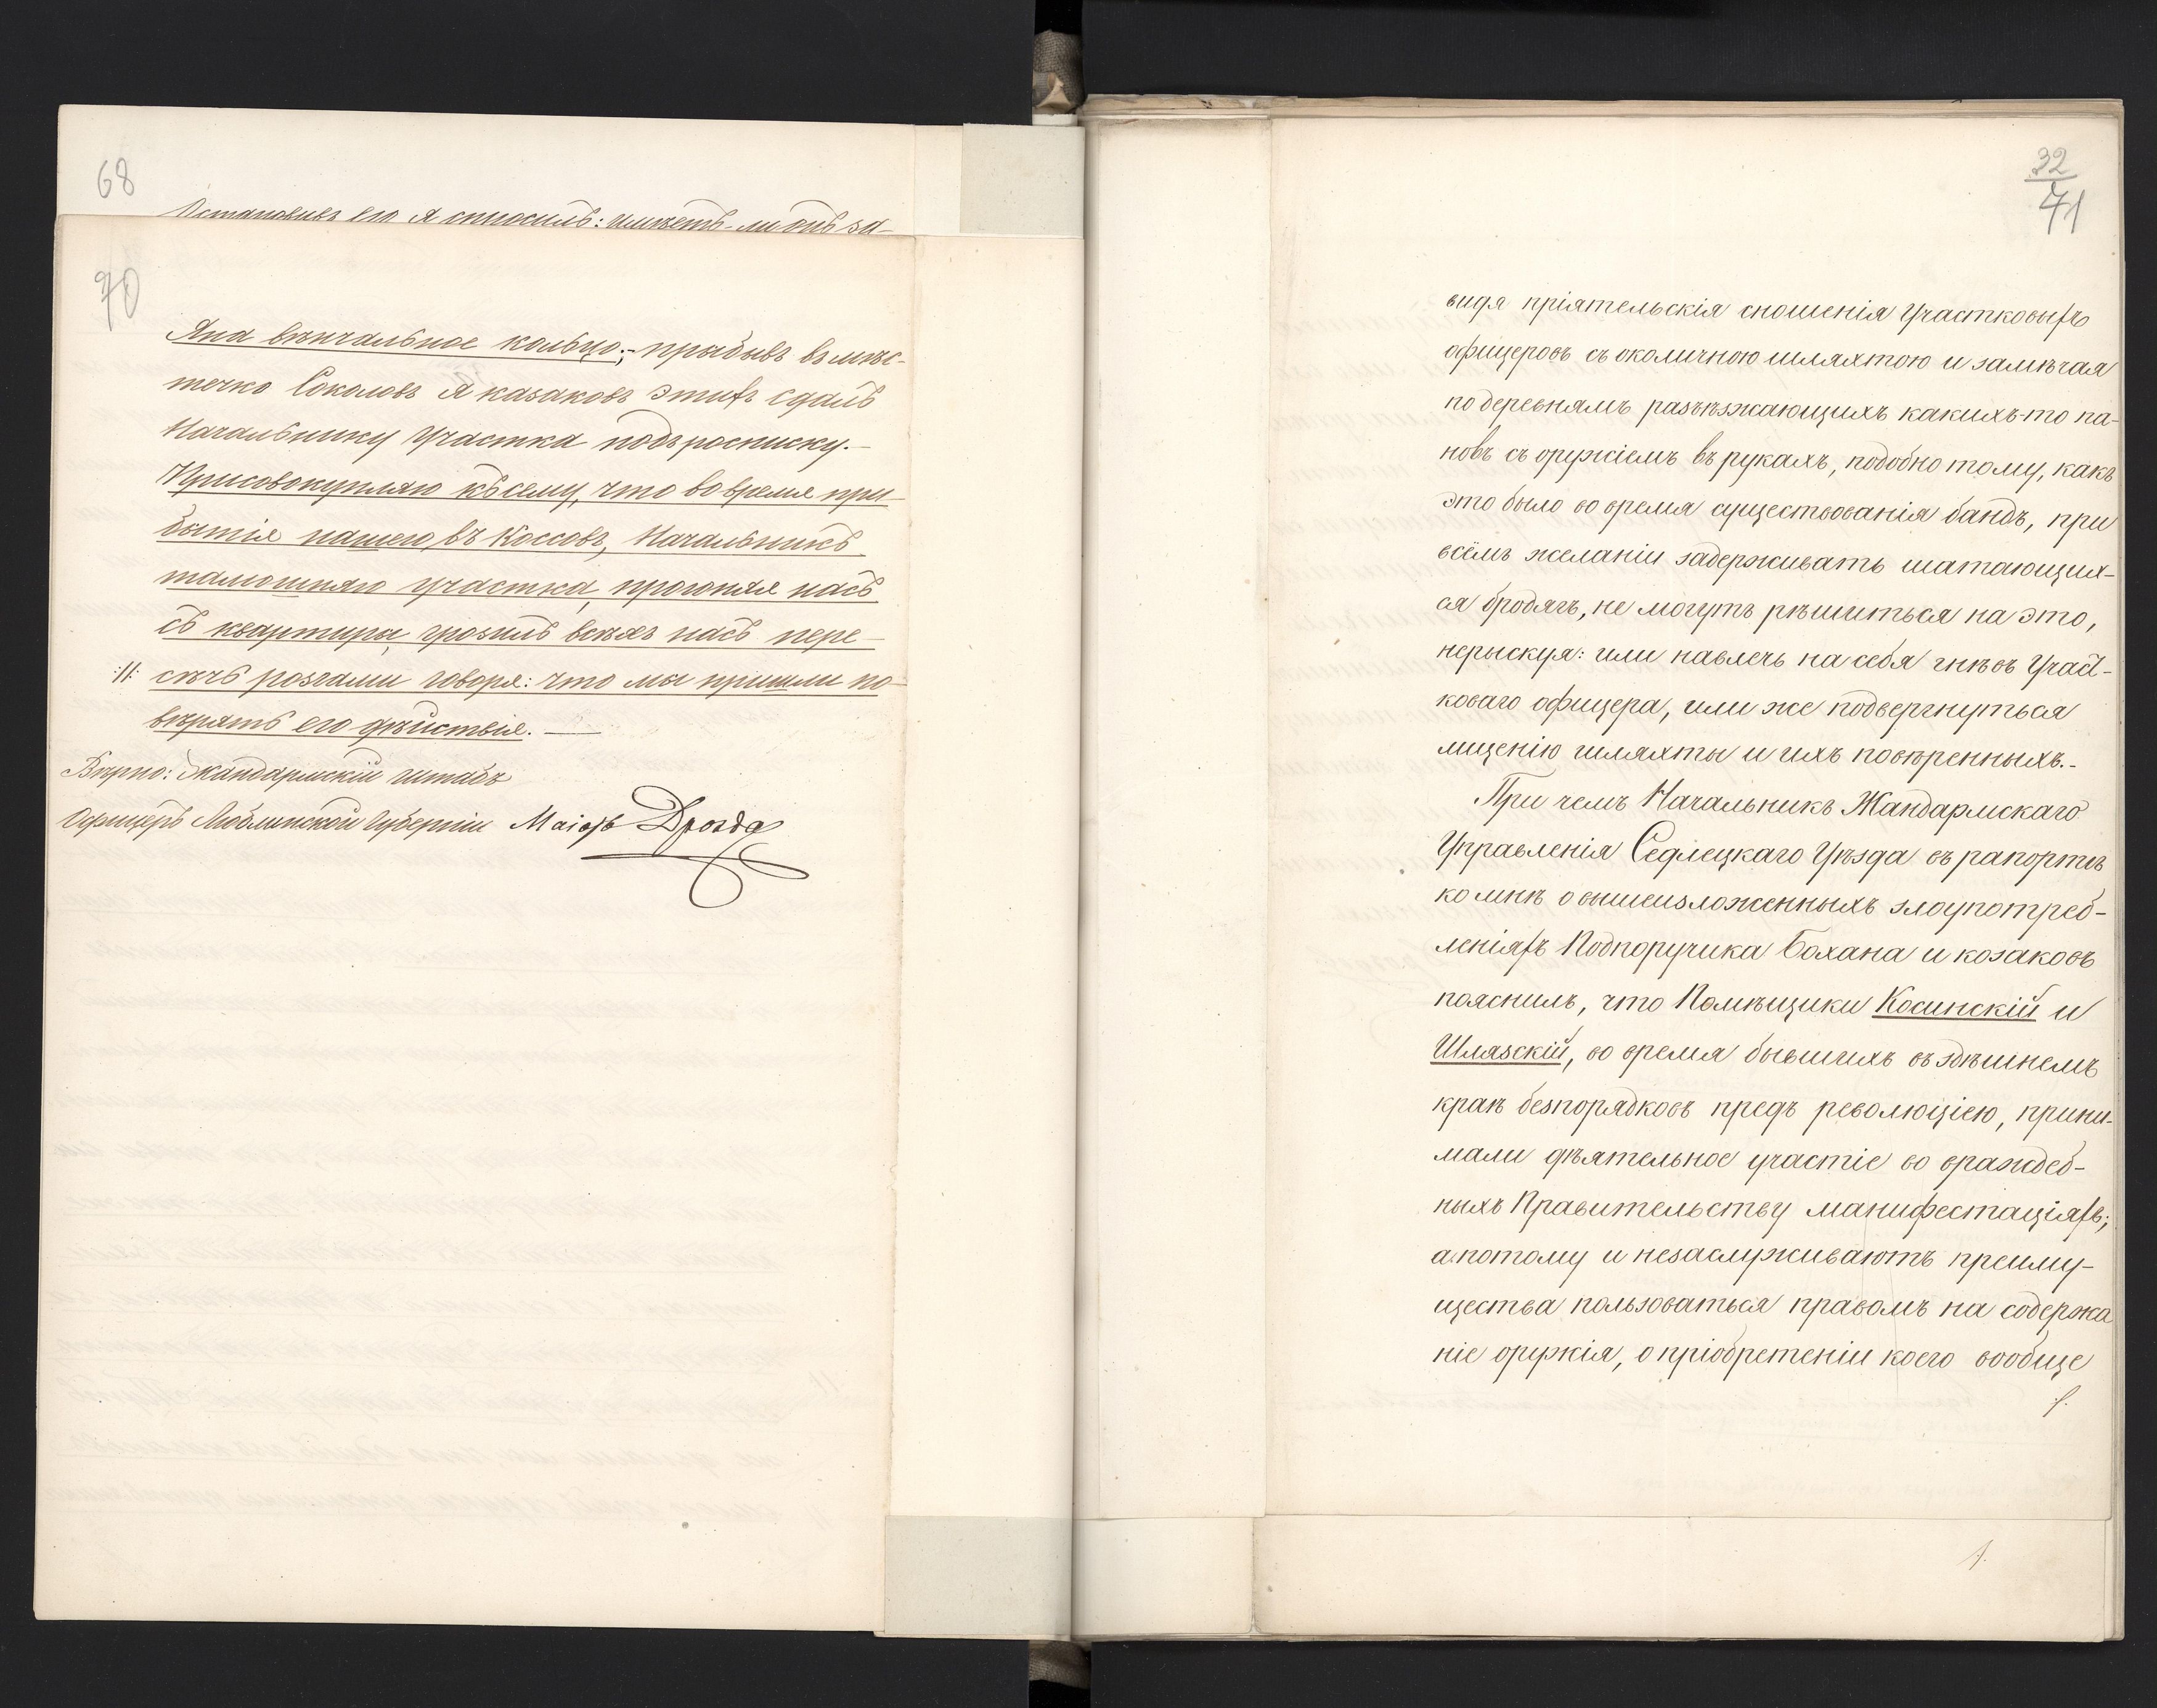 68
Остановивъ его я спросилъ: имѣетъ-ли онъ за-
70
Яна вѣнчальное кольцо; – прибывъ въ мѣс-
течко Соколовъ я казаковъ этихъ сдалъ
Начальнику участка подъ росписку. –
Присовокупляю къ сему, что во время при-
бытія нашего въ Коссовъ, Начальникъ
тамошняго участка, прогоняя насъ
съ квартиры, грозилъ всѣхъ насъ пере-
:11: сѣчь розгами говоря: что мы пришли по-
вѣрять его дѣйствіе. —
Вѣрно: Жандармскій штабъ
Офицеръ Люблинской Губерніи Маіоръ Дрозда
32
71
видя пріятельскія сношенія Участковыхъ
офицеровъ съ околичною шляхтою и замѣчая
по деревнямъ разъѣзжающихъ какихъ-то па-
новъ съ оружіемъ въ рукахъ, подобно тому, какъ
это было во время существованія бандъ, при
всемъ желаніи задерживать шатающих-
ся бродягъ, не могутъ рѣшиться на это,
нерыскуя: или навлечь на себя гнѣвъ Участ-
коваго офицера, или же подвергнуться
мщенію шляхты и ихъ повѣренныхъ. –
При чемъ Начальникъ Жандармскаго
Управленія Седлецкаго Уѣзда въ рапортѣ
ко мнѣ о вышеизложенныхъ злоупотреб-
леніяхъ Подпоручика Бохана и козаковъ
пояснилъ, что Помѣщики Косинскій и
Шляскій, во время бывшихъ въ здѣшнемъ
краѣ безпорядковъ предъ революціею, прини-
мали дѣятельное участіе во враждеб-
ныхъ Правительству манифестаціяхъ;
а потому и незаслуживаютъ преиму-
щества пользоваться правомъ на содержа
ніе оружія, о пріобретеніи коего вообще